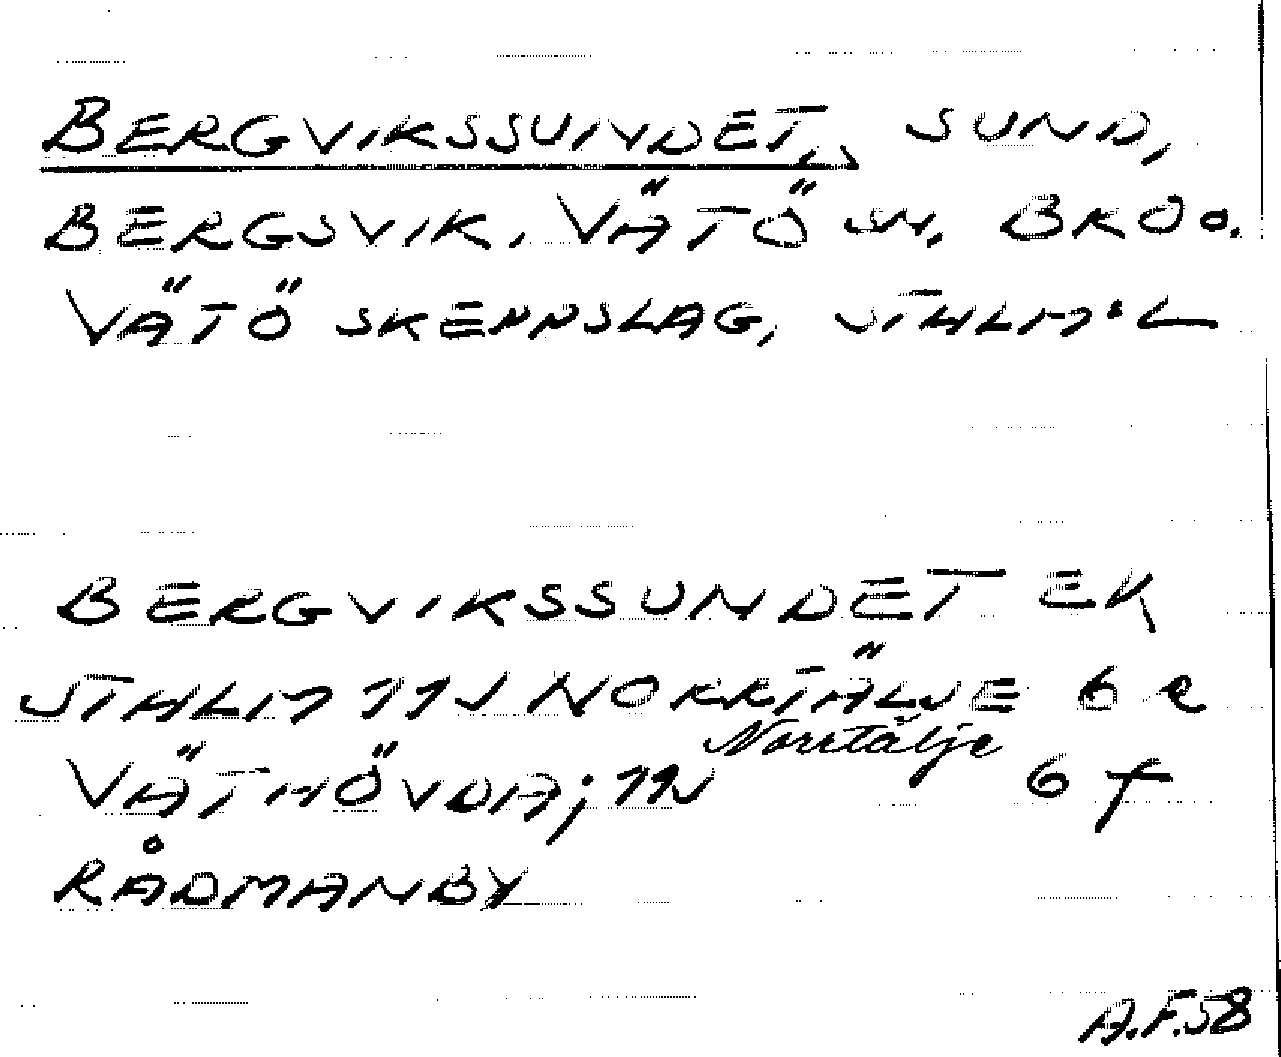 BERGVIKSSUNDET, SUND,
BERGSVIK, VÄTÖ SN, BRO O.
VÄTÖ SKEPPSLAG, STHLM:L
BERGVIKSSUNDET EK
STHLM 11J NORRTÄLJE 6 e
Norrtälje
VÄTHÖVDA; 11J 6 f
RÅDMANBY
A.F.58